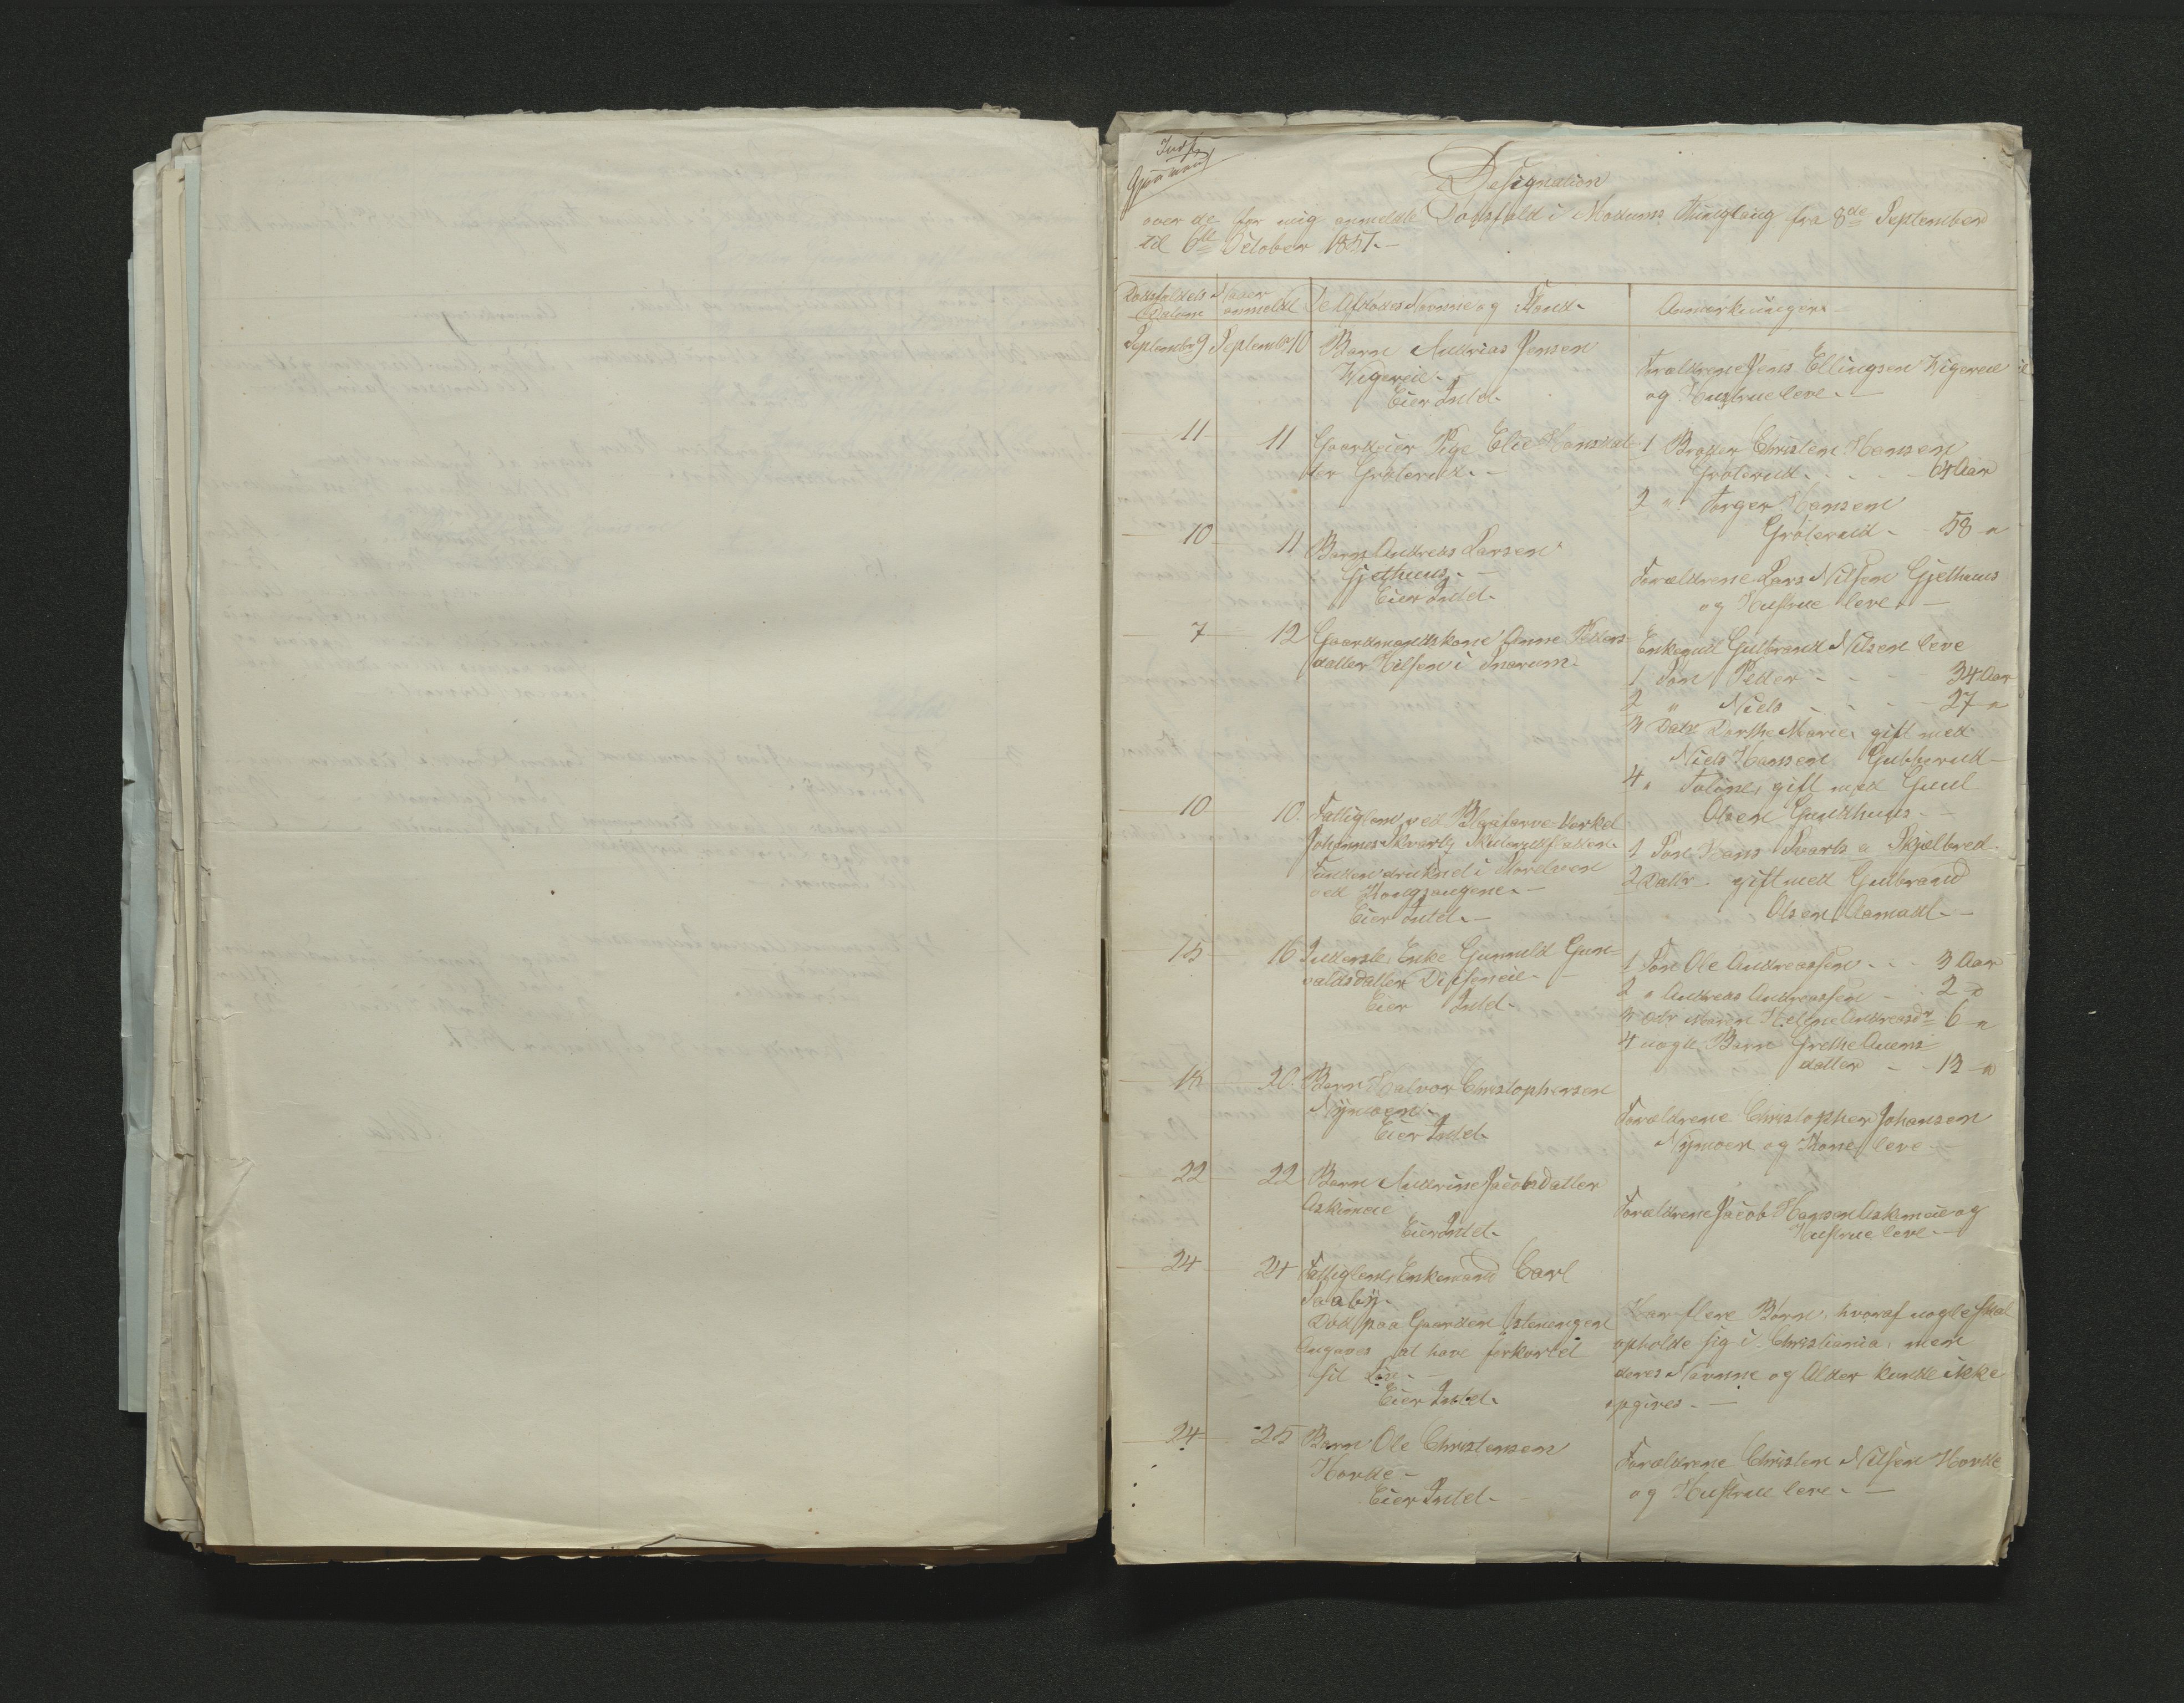 Designation
over de for mig anmeldte Dødsfald i Modums Thinglaug fra 8de September
til 6te October 1851.
Dødsfaldets Datum
Naar anmeldt
De Afdødes Navne og Stand.
Anmærkninger.
September 9 September 10 Barn Andrias Jensen
Wigereie.
Eier Intet.
Forældrene Jens Ellingsen Wigereie
og Hustrue leve.
11 11 Gaardeier Pige Elie Hansdat-
ter Grøterud.
1 Broder Christen Hansen
Grøterud. 64 Aar
2 " Torger Hansen
Grøterud - 58 "
10 11 Barn Andreas Larsen
Gjethuus.
Eier Intet.
Forældrene Lars Nilsen Gjethuus
og Hustrue leve.
7 12 Gaardmandskone Anne Peders-
datter Hilsen i Snarum.
Enkemd Gulbrand Nilsen leve
1 Søn Peder - 34 Aar
2 " Niels - 27 "
3 Datr Dorthe Marie, gift med
Niels Hansen Gubberud
4 " gift med Guul
Olsen Guulhuus.
10 10 Fattiglem ved Blaafarve-Værket
Johannes
Funden druknet i
ved
Eier Intet.
1 Søn Hans Svarts a Skjælbred.
2 Datr. gift med Gulbrand
Olsen Aamodt.
15 16 Inderste, Enke Gunnild Gun-
valdsdatter
Eier Intet.
1 Søn Ole Andreassen - 3 Aar
2 " Andreas Andreassen - 2 "
3 Dtr Maren Helene Andreasdr 6 "
4 uægte Barn Grethe
datter - 13 "
18 20. Barn Halvor Christophersen
Nymoen.
Eier Intet.
Forældrene Christopher Johansen
Nymoen og Kone leve
22 22 Barn Andrine Jacobsdatter
Askimeie
Eier Intet.
Forældrene Jacob Hansen Askimeie og
Hustrue leve.
24 24 Fattiglem, Enkemand Carl
Saaby.
Død paa Gaarden Stenengen
Angives at have forkortet
sit Liv.
Eier Intet.
Har flere Børn, hvoraf nogle skal
opholde sig i Christiania, men
deres Navnne og Alder kunde ikke
opgives.
24 25 Barn Ole Christensen
Hovde
Eier Intet.
Forældrene Christen Nilsen Hovde
og Hustrue leve.